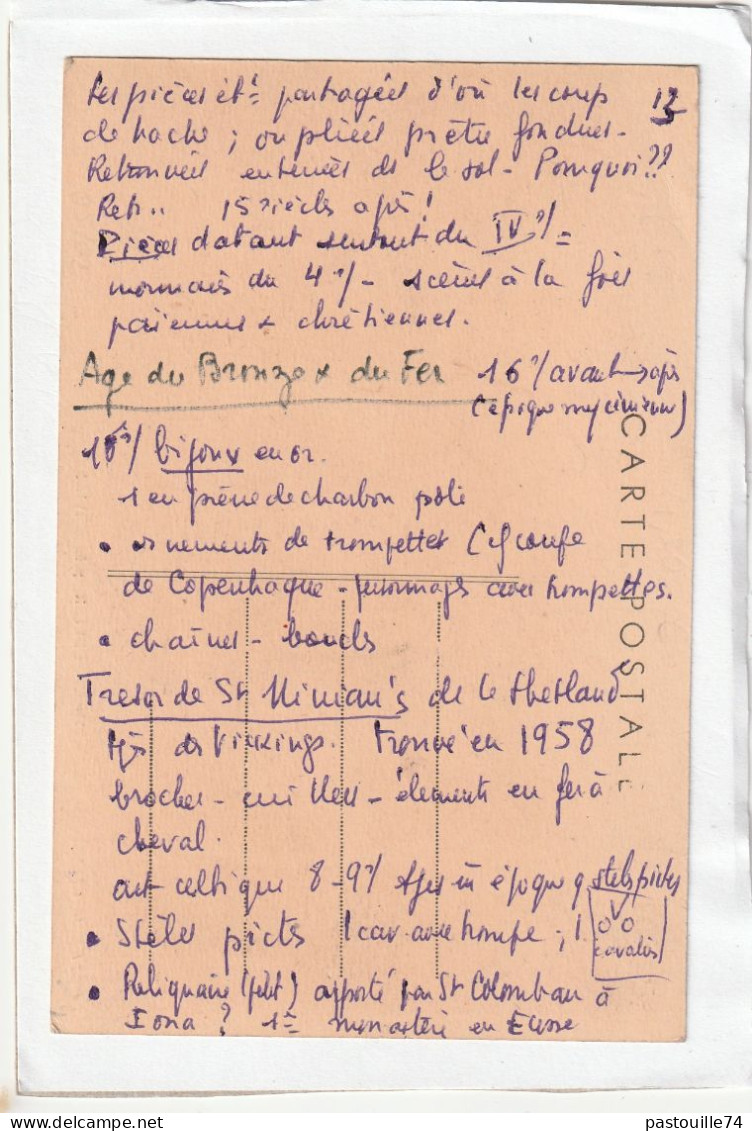 les pièces ét. partagées d'où les coups
13
de hache ; ou pliées prêtes fondues -
enterrées ds le sol - Pourquoi ??
Retr .. 15 siècles après !
Pièces datant surtout du IV s/ =
monnaies du 4 s/ - scènes à la fois
païennes & chrétiennes.
Age du Bronze & du Fer
16 s/ avant → après
(époque mycénienne)
bijoux en or.
1 en pierre de charbon polie
• ornements de trompettes (cf coupe
de Copenhague - personnages avec trompettes.
• chaînes - boucles
Trésor de St Ninian's de le Shetland
des Vikings. trouvé en 1958
broches - cuillers - éléments en fer à
cheval.
art celtique 8-9 s/ époque q stèles pictes
• Stèles pictes 1 cav. avec trompe ; 1
cavaliers
• Reliquaire (petit) apporté par St Colomban à
Iona ? 1e monastère en Ecosse
CARTE POSTALE
pastouille74